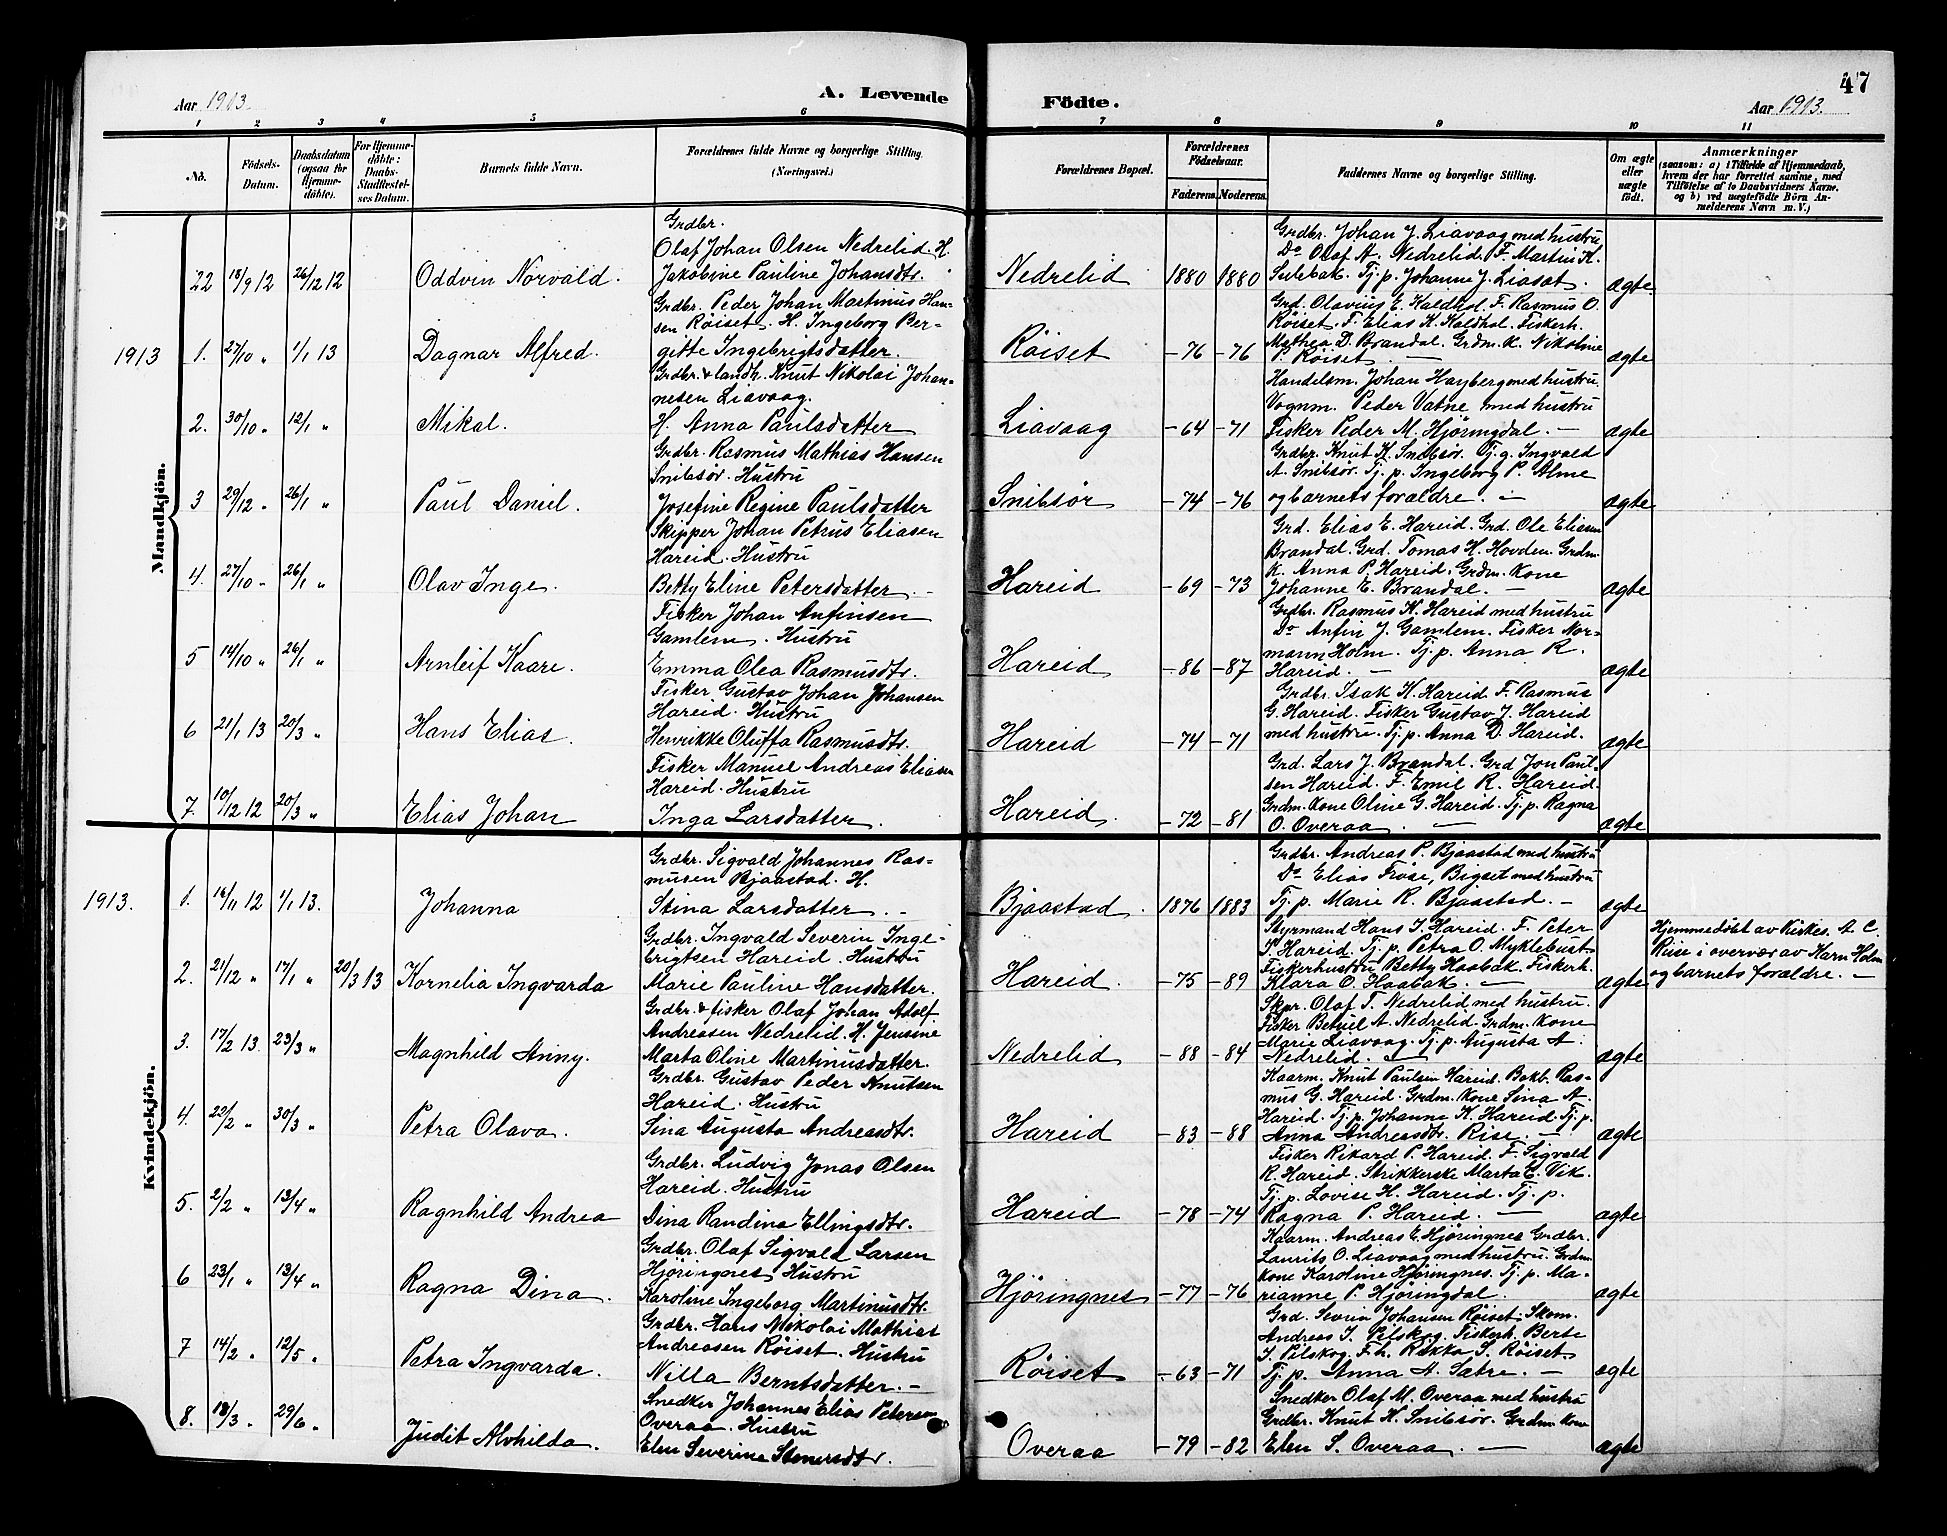 47
Aar 1913.
A. Levende
Födte.
Aar 1913.
1 2 3 4 5 6 7 8 9 10 11
No.
Födsels-Datum.
Daabsdatum (ogsaa for Hjemme-döbte).
For Hjemme-döbte: Daabs-Stadfæstel-ses Datum.
Barnets fulde Navn.
Forældrenes fulde Navne og borgerlige Stilling. (Næringsvei.)
Forældrenes Bopæl.
Forældrenes Födselsaar.
Faderens. Moderens.
Faddernes Navne og borgerlige Stilling.
Om ægte eller uægte födt.
Anmærkninger
(saasom: a) i Tilfælde af Hjemmedaab, hvem der har forrettet samme, med Tilföielse af to Daabsvidners Navne, og b) ved uægtefödte Börn An-melderens Navn m. V.)
Mandkjön.
22 18/9 12 26/12 12 Oddvin Norvald.
Grdbr.
Olaf Johan Olsen Nedrelid. H.
Jakobine Pauline Johansdtr.
Nedrelid 1880 1880
Grdbr. Johan J. Liavaag med hustru
Do Olaf A. Nedrelid. F. Martin K.
Sulebak. Tj. p. Johanne J. Liaset.
ægte.
1913 1. 27/10 " 1/1 13 Dagnar Alfred.
Grdbr. Peder Johan Martinus Han-
sen Röiset. H. Ingeborg Ber-
gitte Ingebrigtsdatter.
Röiset - 76 - 76
Grd. Olavius E. Kaldhol. F. Rasmus O.
Röiset. F. Elias K. Kaldhol. Fiskerh.
Mathea D. Brandal. Grdm. K. Nikoline
P. Röiset. -
ægte
2. 30/10 " 12/1 " Mikal.
Grdbr. & landh. Knut Nikolai Johan-
nesen Liavaag.
H. Anna Paulsdatter
Liavaag - 64 - 71
Handelsm. Johan Hayberg med hustru.
Vognm. Peder Vatne med hustru
Fisker Peder M. Hjöringdal. -
ægte
3 29/12 " 26/1 " Paul Daniel.
Grdbr. Rasmus Mathias Hansen
Snibsör. Hustru
Josefine Regine Paulsdatter
Snibsör - 74 - 76
Grdbr. Knut H. Snibsör. Tj. g. Ingvald
A. Snibsör. Tj. p. Ingeborg P. Alme
og barnets forældre. -
ægte
4. 27/10 " 26/1 " Olav Inge.
Skipper Johan Petrus Eliasen
Hareid. Hustru
Betty Eline Petersdatter. -
Hareid - 69 - 73
Grd. Elias E. Hareid. Grd. Ole Eliasen
Brandal. Grd. Tomas H. Hovden. Grdm.
K. Anna P. Hareid. Grdm. Kone
Johanne E. Brandal. -
ægte
5 14/10 " 26/1 " Arnleif Kaare.
Fisker Johan Anfinsen
Gamlem. Hustru
Emma Olea Rasmusdtr.
Hareid - 86 - 87
Grdbr. Rasmus K. Hareid med hustru
Do Anfin J. Gamlem. Fisker Nor-
mann Holm. Tj. p. Anna R.
Hareid. -
ægte
6 21/1 13 20/3 " Hans Elias.
Fisker Gustav Johan Johansen
Hareid. Hustru
Henrikke Oluffa Rasmusdtr.
Hareid - 74 - 71
Grdbr. Isak K. Hareid. F. Rasmus
G. Hareid. Fisker Gustav J. Hareid
med hustru. Tj. p. Anna D. Hareid.
ægte
7. 10/12 12 20/3 " Elias Johan
Fisker Manuel Andreas Eliasen
Hareid. Hustru
Inga Larsdatter.
Hareid. - 72 - 81
Grd. Lars J. Brandal. Grd Jon Paul-
sen Hareid. F. Emil R. Hareid.
Grdm. Kone Oline G. Hareid. Tj. p. Ragna
O. Overaa. -
ægte
Kvindekjön.
1913. 1. 16/11 12 1/1 13. Johanna
Grdbr. Sigvald Johannes Ras-
musen Bjaastad. H.
Stina Larsdatter. -
Bjaastad. 1876 1883
Grdbr. Andreas P. Bjaastad med hustru
Do Elias Fröse, Bigset med hustru
Tj. p. Marie R. Bjaastad. -
ægte
2. 21/12 " 17/1 " 20/3 13 Kornelia Ingvarda
Grdbr. Ingvald Severin Inge-
brigtsen Hareid. Hustru
Marie Pauline Hansdatter.
Hareid. - 75 - 89
Styrmand Hans I. Hareid. F. Peter
S. Hareid. Tj. p. Petra O. Myklebust
Fiskerhustru Betty Haabak. Fiskerh.
Klara O. Haabak. -
ægte
Hjemmedöbt av Kirkes. A. C.
Riise i overvær av Karn Holm
og barnets forældre. -
3. 17/2 13. 23/3 " Magnhild Anny.
Grdbr. & fisker Olaf Johan Adolf
Andreasen Nedrelid. H. Jensine
Marta Oline Martinusdatter.
Nedrelid - 88 - 84
Skpr. Olaf T. Nedrelid med hustru.
Fisker Betuel A. Nedrelid. Grdm. Kone
Marie Liavaag. Tj. p. Augusta A.
Nedrelid. -
ægte
4. 22/2 " 30/3 " Petra Olava.
Grdbr. Gustav Peder Knutsen
Hareid. Hustru
Sina Augusta Andreasdtr.
Hareid - 83 - 88
Kaarm. Knut Paulsen Hareid. Bokb. Ras-
mus G. Hareid. Grdm. Kone Sina A.
Hareid. Tj. p. Johanne K. Hareid. Tj. p.
Anna Andreasdtr. Rise. -
ægte
5. 2/2 " 13/4 " Ragnhild Andrea
Grdbr. Ludvig Jonas Olsen
Hareid. Hustru
Dina Randina Ellingsdtr.
Hareid - 78 - 74
Fisker Rikard P. Hareid. F. Sigvald
R. Hareid. Strikkerske Marta E. Vik.
Tj. p. Lovise H. Hareid. Tj. p.
Ragna P. Hareid. -
ægte
6 23/1 " 13/4 " Ragna Dina.
Grdbr. Olaf Sigvald Larsen
Hjöringnes Hustru
Karoline Ingeborg Martinusdtr.
Hjöringnes - 77 - 76
Kaarm. Andreas E. Hjöringnes Grdbr.
Laurits O. Liavaag med hustru. Grdm
Kone Karoline Hjöringnes. Tj. p. Ma-
rianne P. Hjöringdal.
ægte
7 14/2 " 12/5 " Petra Ingvarda.
Grdbr. Hans Nikolai Mathias
Andreasen Röiset. Hustru
Nilla Berntsdatter. -
Röiset - 63 - 71
Grd. Sevrin Johansen Röiset. Skom.
Andreas I. Pilskog. Fiskerh. Berte
I. Pilskog. F. h. Rakka S. Röiset.
Tj. p. Anna A. Sætre. -
ægte
8. 18/3 " 29/6 " Judit Alvhilda.
Snedker Johannes Elias Petersen
Overaa. Hustru
Elen Severine Stenersdtr.
Overaa - 79 - 82
Snedker Olaf M. Overaa med hustru
Grdbr. Knut H. Snibsör. Grdm. Kone
Elen S. Overaa. -
ægte